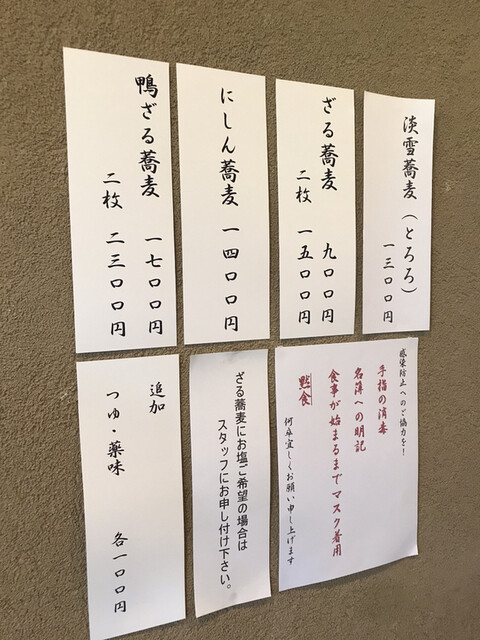 淡雪蕎麦(とろろ)
一三〇〇円
ざる蕎麦 九〇〇円
二枚 一五〇〇円
にしん蕎麦 一四〇〇円
鴨ざる蕎麦 一七〇〇円
二枚 二三〇〇円
感染防止へのご協力を!
手指の消毒
名簿への明記
食事が始まるまでマスク着用
黙食
何卒宜しくお願い申し上げます
ざる蕎麦にお塩ご希望の場合は
スタッフにお申し付け下さい。
追加
つゆ・薬味 各一〇〇円